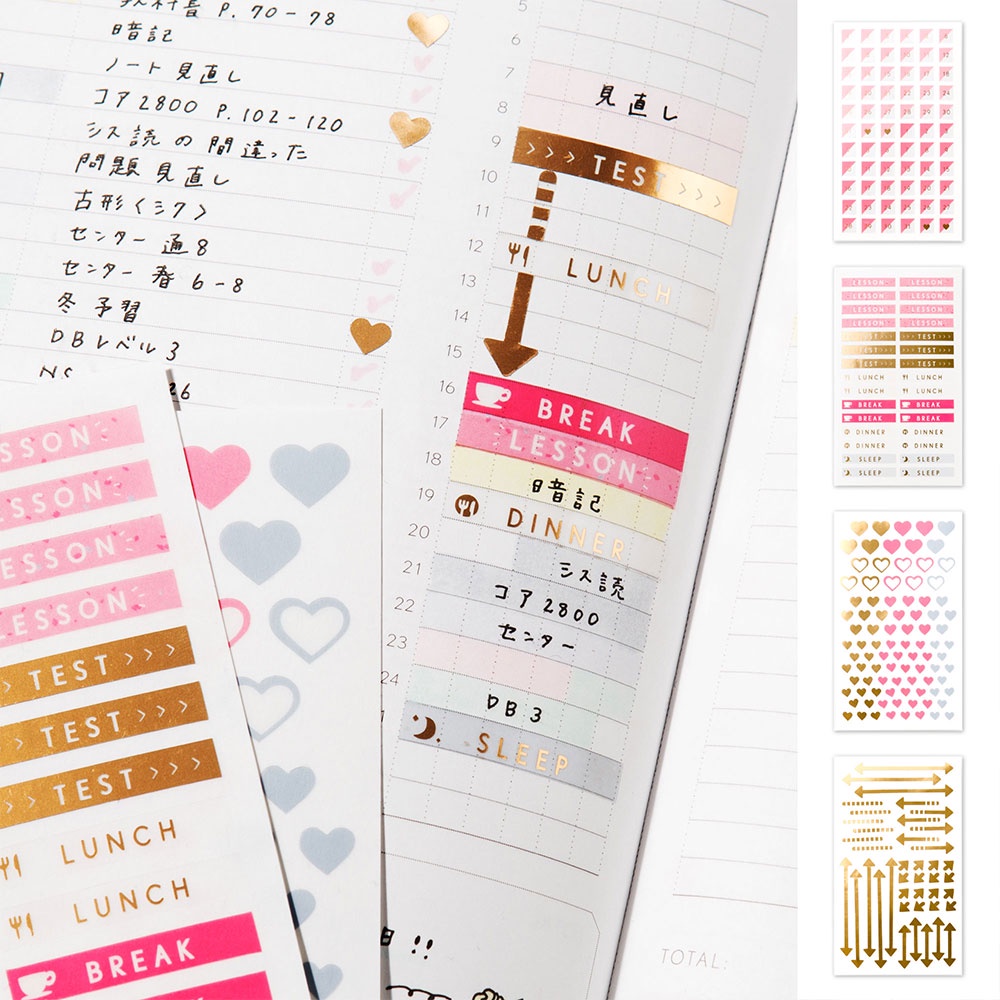 教科書 P.70-78
日音記
ノート見直し
コア2800 P.102-120
シス読の間違った
問題見直し
古形〈シク〉
センター 通8
センター 春6-8
冬予習
DBレベル3
NS
26
5
6
7
見直し
8
9
>>> TEST >>>
10
11
12
LUNCH
13
14
15
16
BREAK
17
LESSON
18
日音記
19
DINNER
20
シス読
21
コア2800
22
センター
23
24
DB3
SLEEP
日!!
TOTAL:
SSON
ESSON
ESSON
LESSON
> TEST >>>
> TEST >>>
> TEST >>>
LUNCH
LUNCH
BREAK
LESSON LESSON
LESSON LESSON
LESSON LESSON
LESSON LESSON
TEST >>> TEST >>>
TEST >>> TEST >>>
TEST >>> TEST >>>
LUNCH LUNCH
LUNCH LUNCH
BREAK BREAK
BREAK BREAK
DINNER DINNER
DINNER DINNER
SLEEP SLEEP
SLEEP SLEEP